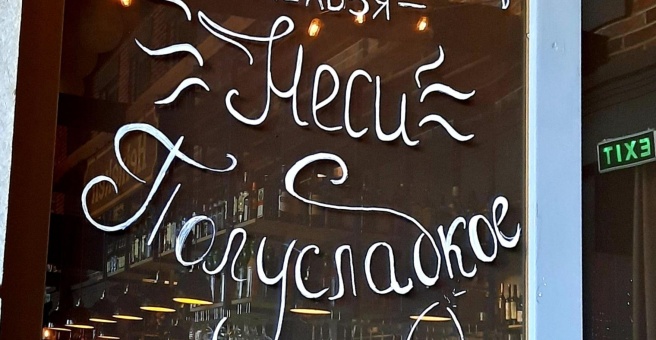 Неси
Полусладкое
EXIT